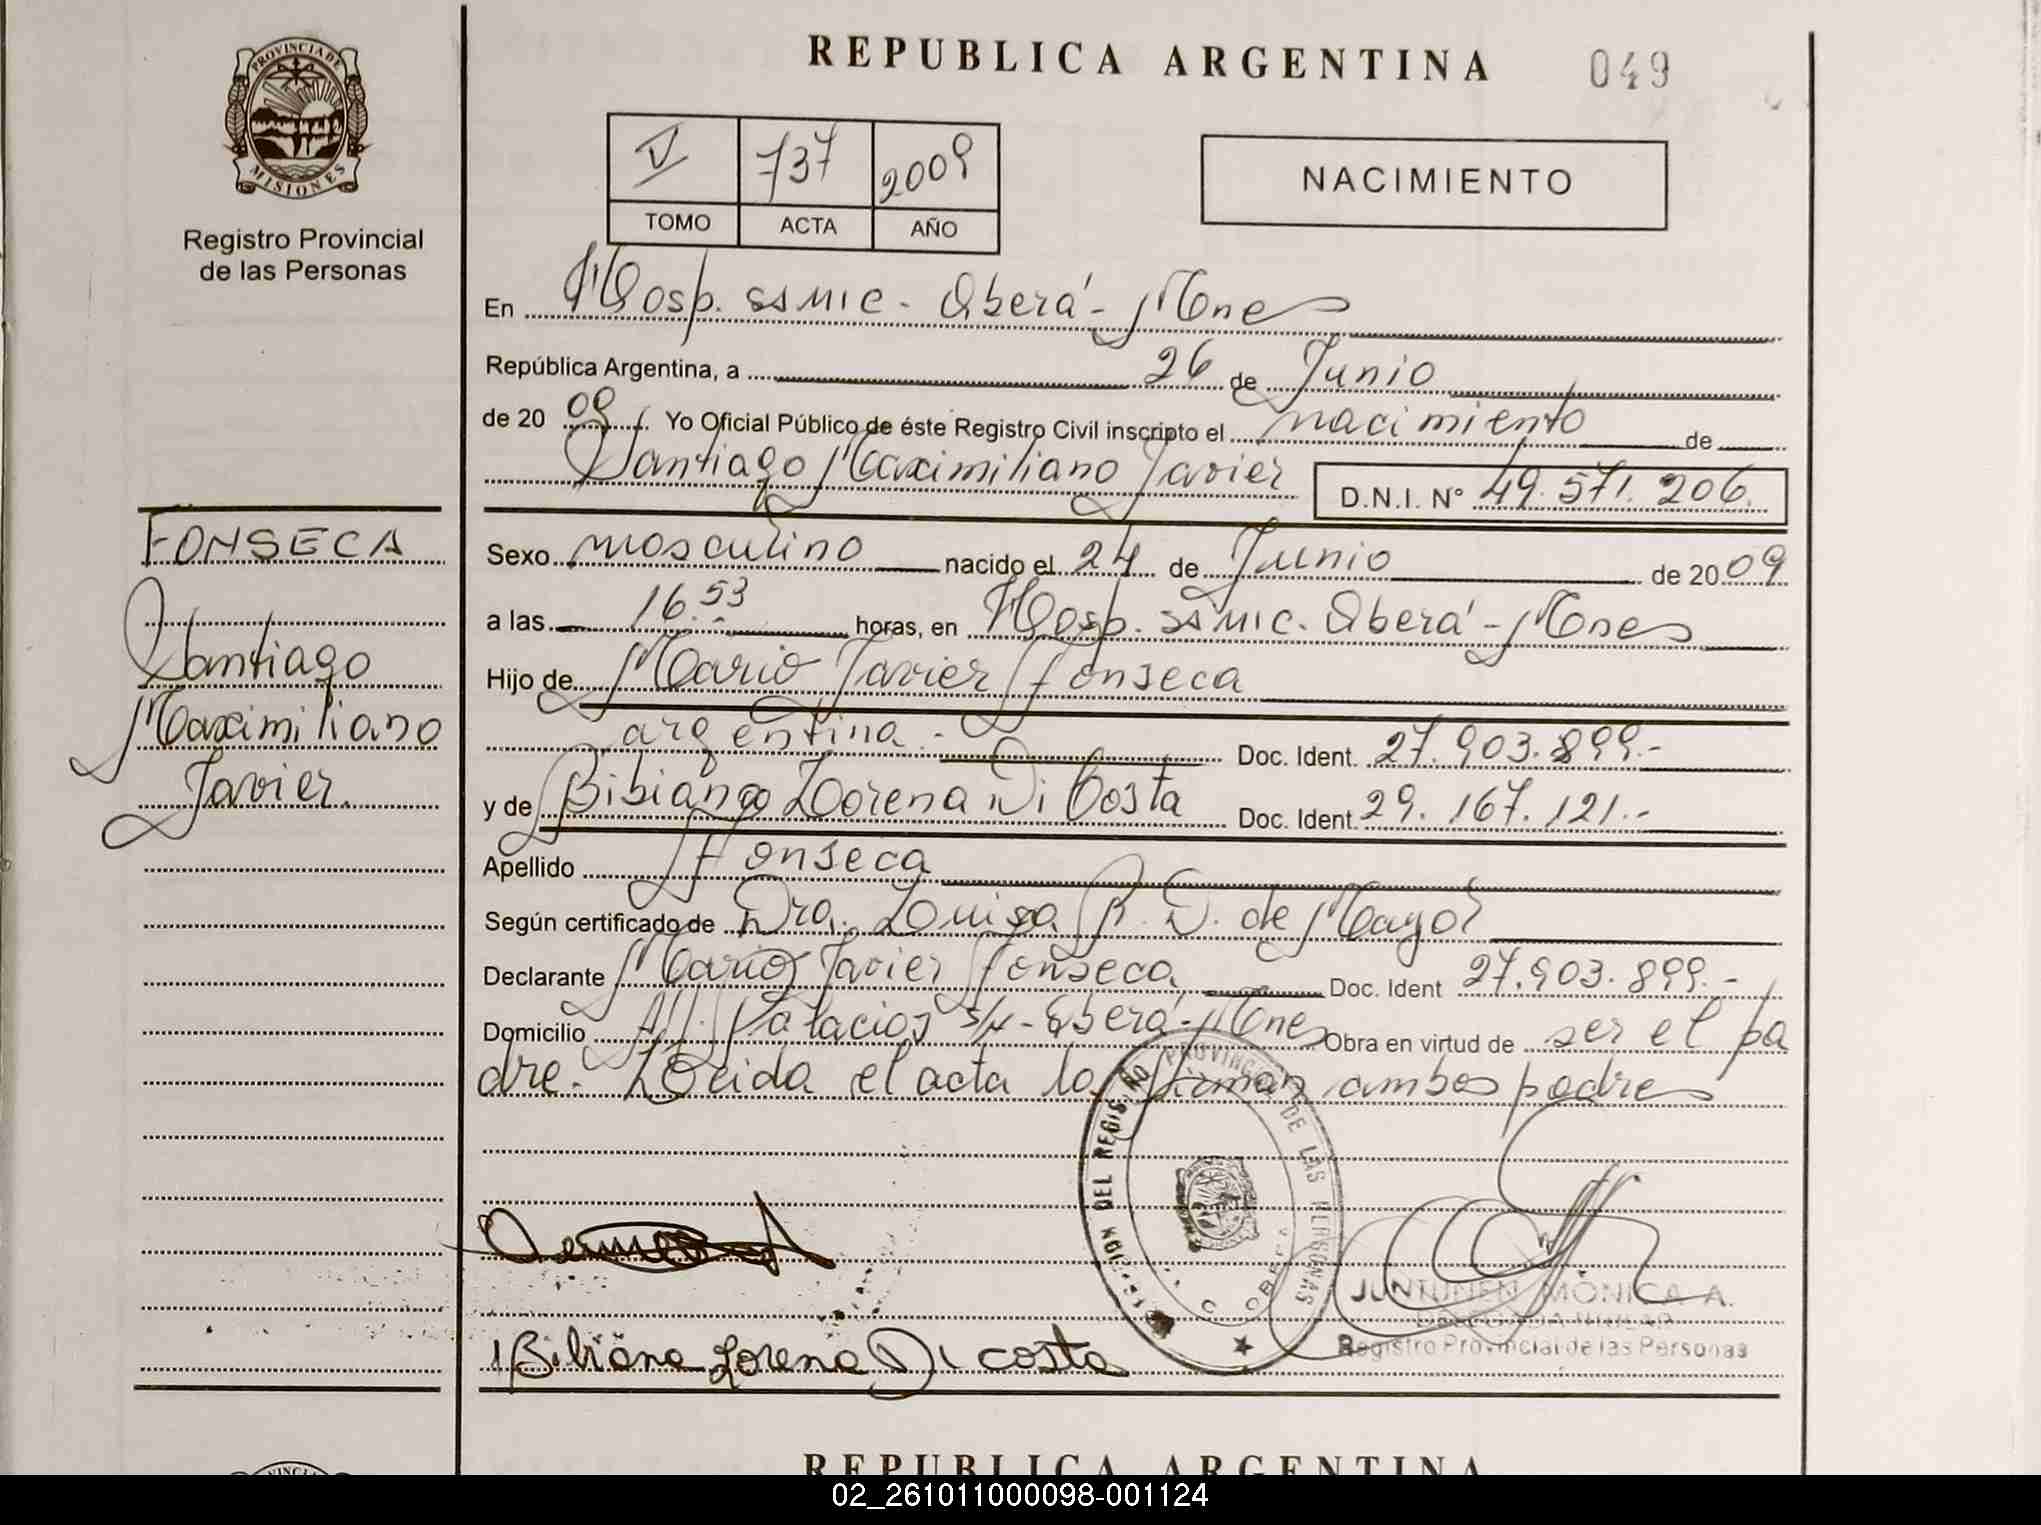 REPUBLICA ARGENTINA
049
PROVINCIA DE
MISIONES
Registro Provincial
de las Personas
V 737 2009
TOMO ACTA AÑO
NACIMIENTO
En Hosp. SSMIC - Oberá - Mnes
República Argentina, a 26 de Junio
de 20 09 Yo Oficial Público de éste Registro Civil inscripto el nacimiento de
Santiago Maximiliano Javier D.N.I. N° 49.571.206.
FONSECA
Santiago
Maximiliano
Javier.
Sexo masculino nacido el 24 de Junio de 20 09
a las 16.53 horas, en Hosp. SSMIC. Oberá - Mnes
Hijo de Mario Javier Fonseca
argentina.- Doc. Ident. 27.903.899.-
y de Bibiana Lorena Di Costa Doc. Ident. 29.167.121.-
Apellido Fonseca
Según certificado de Dra. Luisa R. D. de Mayol
Declarante Mario Javier Fonseca Doc. Ident 27.903.899.-
Domicilio Palacios s/n - Oberá - Mnes Obra en virtud de ser el pa
dre. Leida el acta la firman ambos padres
PROVINCIAL DE LAS PERSONAS
Bibiana Lorena Di Costa
JUNTUNEN MONICA A.
Registro Provincial de las Personas
REPUBLICA ARGENTINA
02_261011000098-001124